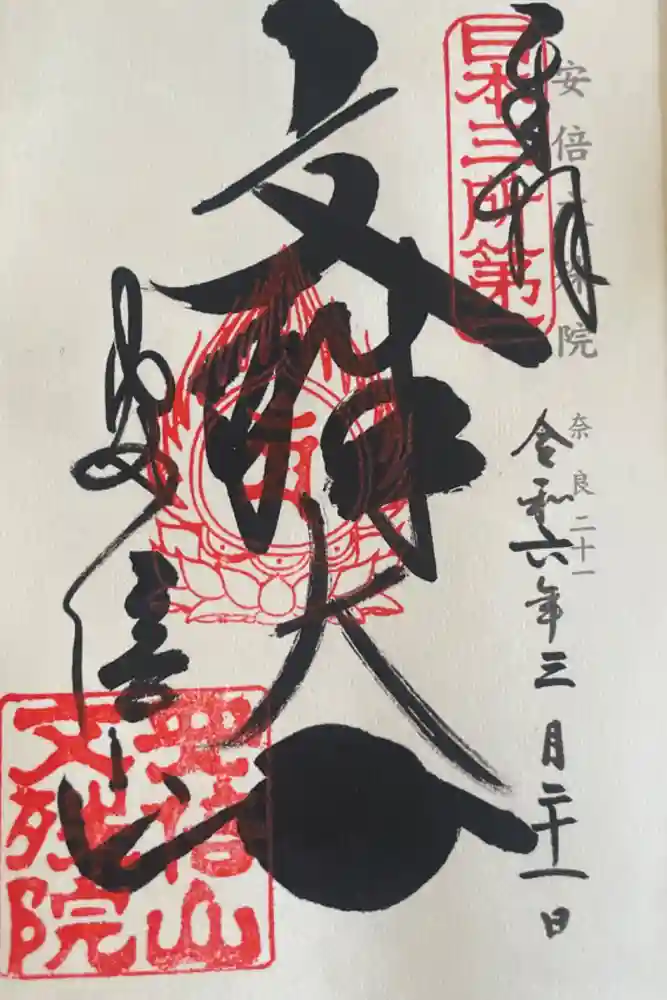 安倍文殊院
奈良二十一
奉拝
令和六年三月二十一日
日本三所第一
文殊大
安倍山
安倍山
文殊院